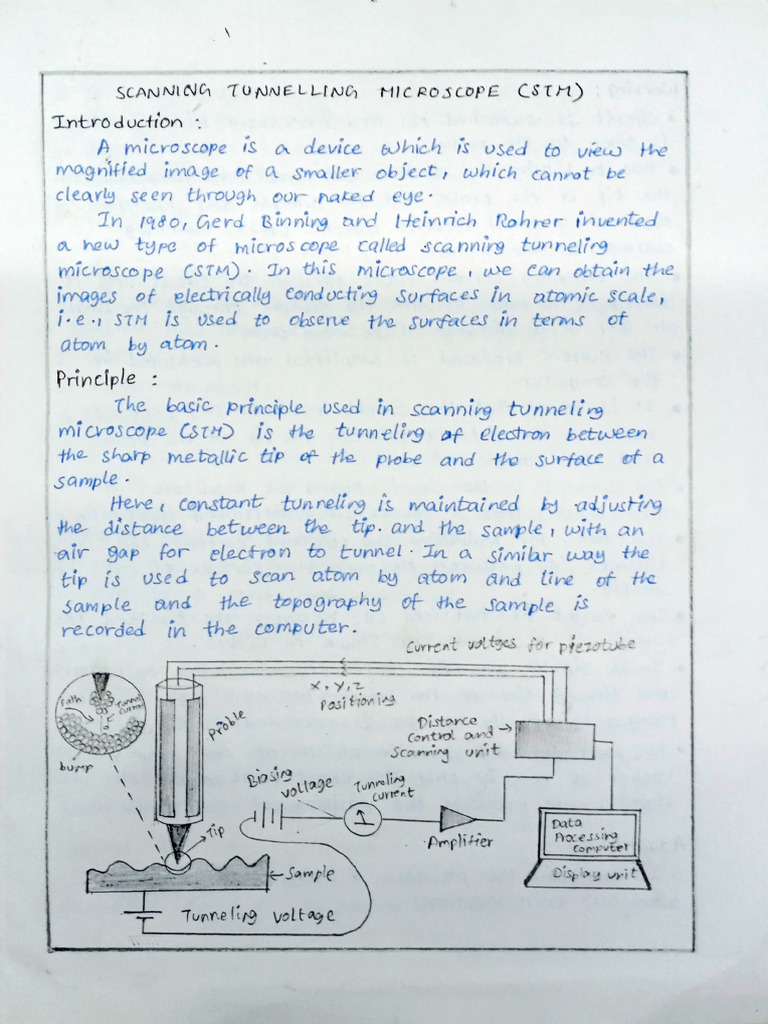 SCANNING TUNNELLING MICROSCOPE (STM)
Introduction :
A microscope is a device which is used to view the
magnified image of a smaller object, which cannot be
clearly seen through our naked eye.
In 1980, Gerd Binning and Heinrich Rohrer invented
a new type of microscope called scanning tunneling
microscope (STM). In this microscope, we can obtain the
images of electrically conducting surfaces in atomic scale,
i.e., STM is used to observe the surfaces in terms of
atom by atom.
Principle :
The basic principle used in scanning tunneling
microscope (STM) is the tunneling of electron between
the sharp metallic tip of the probe and the surface of a
sample.
Here, constant tunneling is maintained by adjusting
the distance between the tip. and the sample, with an
air gap for electron to tunnel. In a similar way the
tip is used to scan atom by atom and line of the
sample and the topography of the sample is
recorded in the computer.
Current voltges for piezotube
x, y, z
Positioning
Path
Tunnel
Current
bump
Proble
Distance
Control and
Scanning unit
Biasing
voltage
Tunneling
current
Amplifier
Tip
Data
Processing
computer
Display unit
Sample
Tunneling voltage